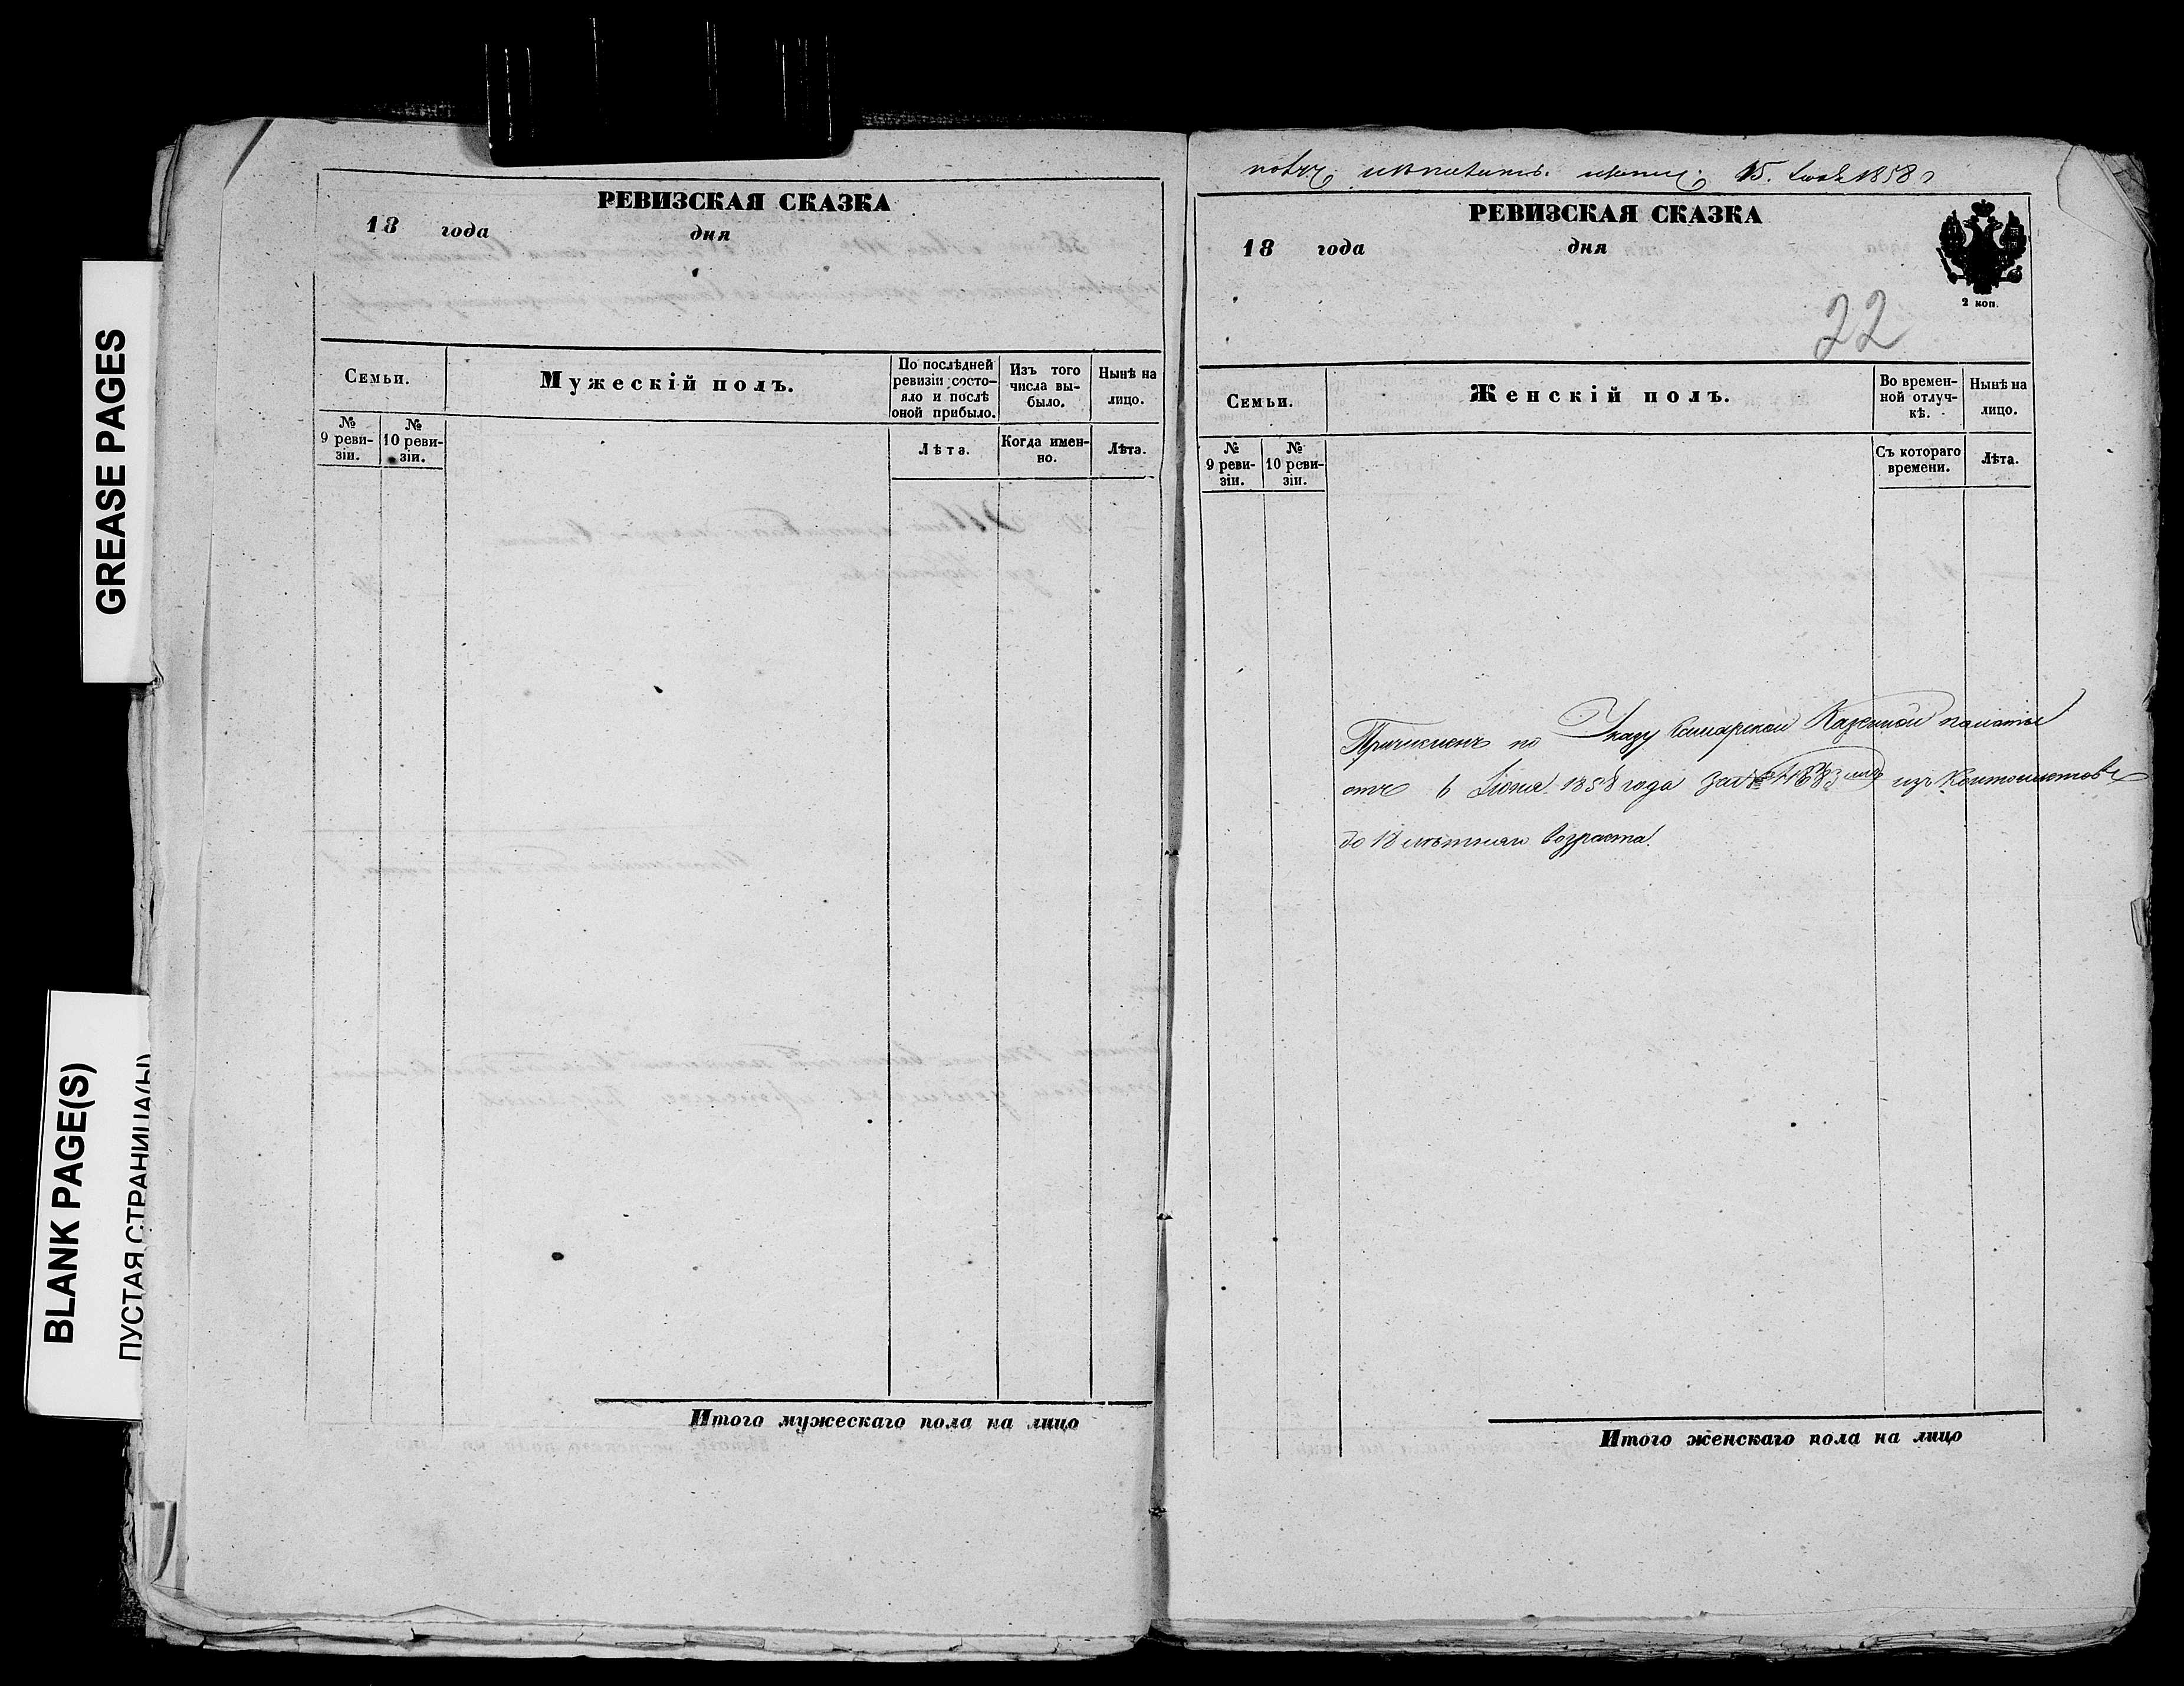 GREASE PAGES
BLANK PAGE(S)
ПУСТАЯ СТРАНИЦА(Ы)
РЕВИЗСКАЯ СКАЗКА
18 года дня
Семьи.
Мужескій полъ.
По послѣдней ревизіи состояло и послѣ оной прибыло.
Изъ того числа выбыло.
Нынѣ на лицо.
№ 9 ревизіи.
№ 10 ревизіи.
Лѣта.
Когда именно.
Лѣта.
Итого мужескаго пола на лицо
15. 1858
РЕВИЗСКАЯ СКАЗКА
18 года дня
2 коп.
22
Семьи.
Женскій полъ.
Во временной отлучкѣ.
Нынѣ на лицо.
№ 9 ревизіи.
№ 10 ревизіи.
Съ котораго времени.
Лѣта.
Причисленъ по Указу Самарской Казенной палаты
отъ 6 Іюня 1858 года за изъ Кантонистовъ
до 18 лѣтняго возраста.
Итого женскаго пола на лицо